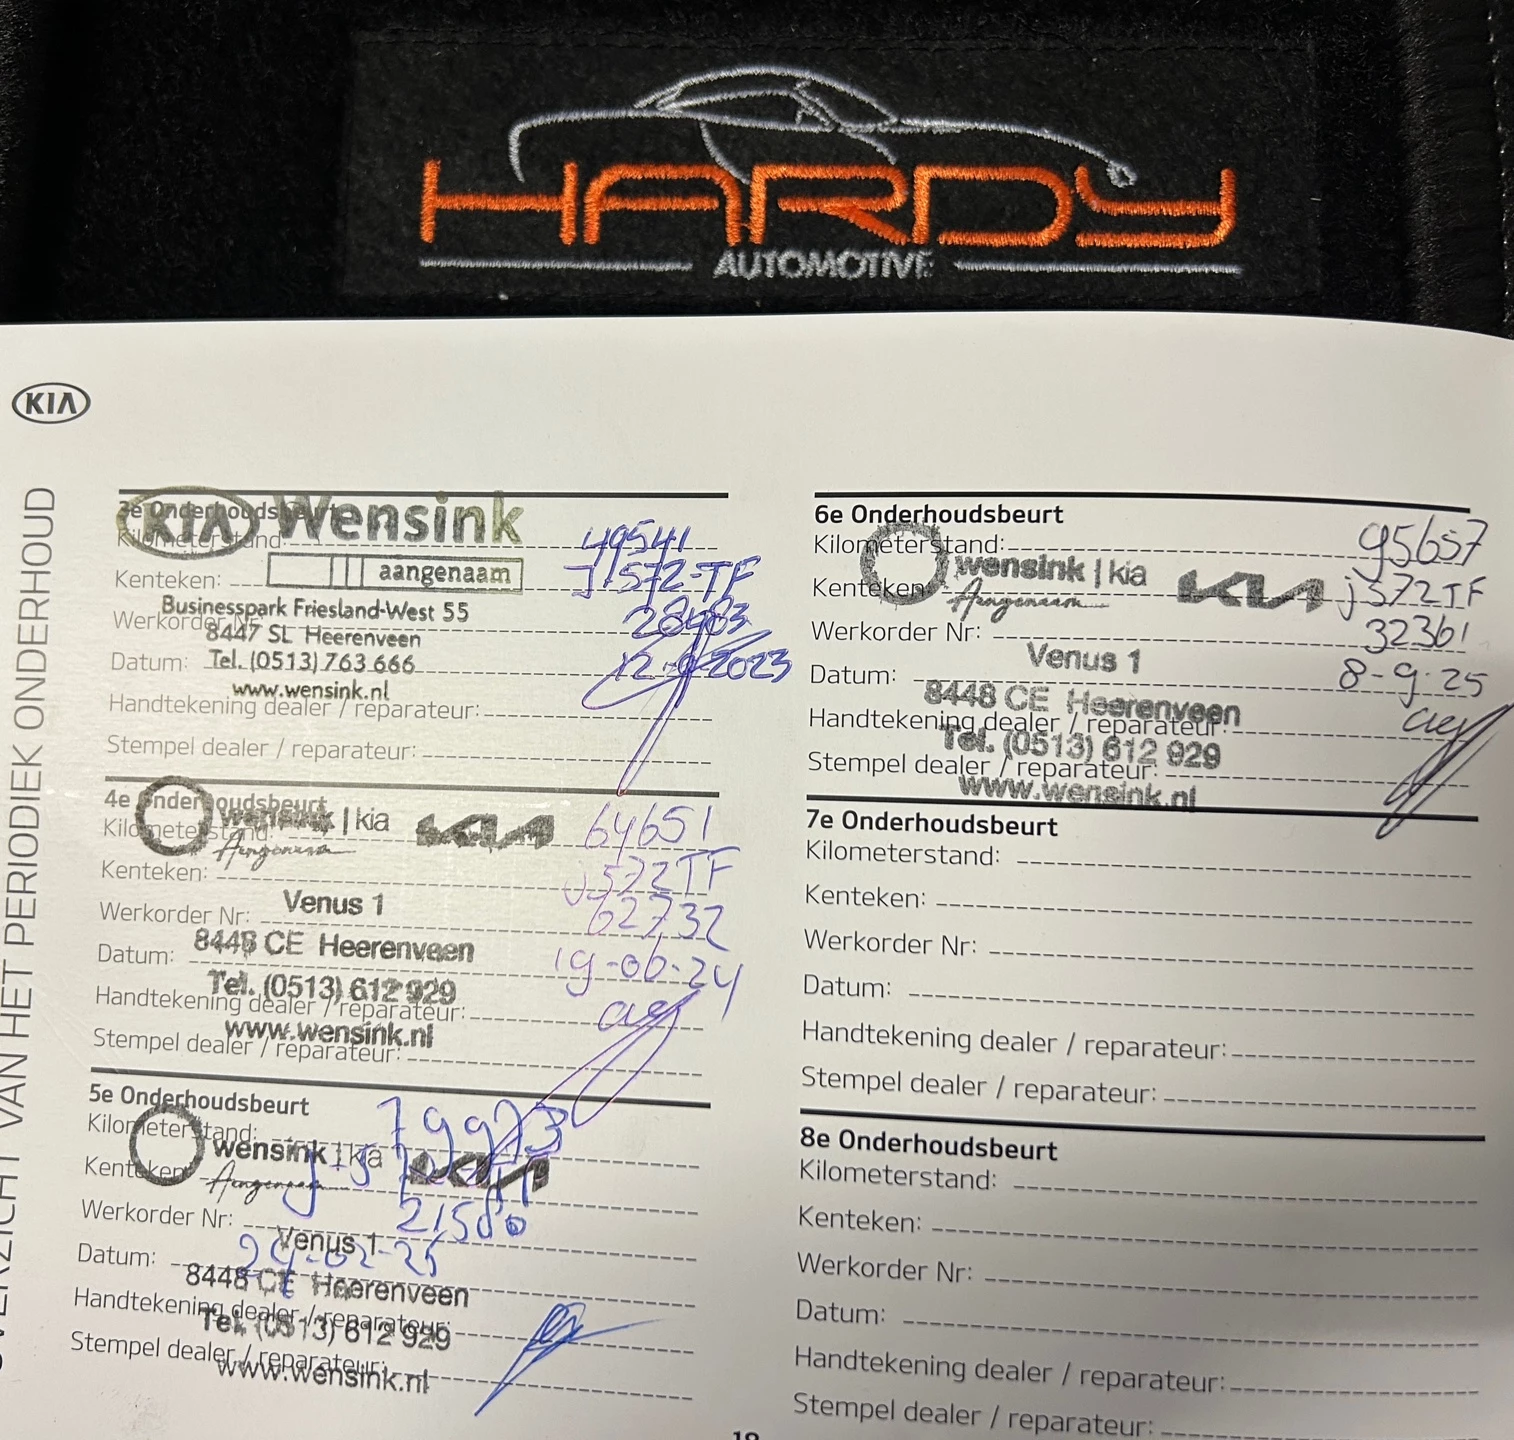 HARDY
AUTOMOTIVE
KIA
OVERZICHT VAN HET PERIODIEK ONDERHOUD
3e Onderhoudsbeurt
KIA Wensink
Kilometerstand: 49541
aangenaam
Kenteken: J-572-TF
Businesspark Friesland-West 55
Werkorder Nr: 28483
8447 SL Heerenveen
Datum: 12-9-2023
Tel. (0513) 763 666
www.wensink.nl
Handtekening dealer / reparateur:
Stempel dealer / reparateur:
4e Onderhoudsbeurt
Kilometerstand: 64651
wensink | kia KIA
Aangenaam
Kenteken: J572TF
Werkorder Nr: 62732
Venus 1
Datum: 19-06-24
8448 CE Heerenveen
Tel. (0513) 612 929
Handtekening dealer / reparateur:
www.wensink.nl
Stempel dealer / reparateur:
5e Onderhoudsbeurt
Kilometerstand: 79973
wensink | kia KIA
Kenteken:
Aangenaam
Werkorder Nr: 21580
Venus 1
Datum: 24-02-25
8448 CE Heerenveen
Handtekening dealer / reparateur:
Tel. (0513) 612 929
Stempel dealer / reparateur:
www.wensink.nl
6e Onderhoudsbeurt
Kilometerstand: 95657
wensink | kia KIA
Kenteken: J572TF
Aangenaam
Werkorder Nr: 32361
Venus 1
Datum: 8-9-25
8448 CE Heerenveen
Handtekening dealer / reparateur:
Tel. (0513) 612 929
Stempel dealer / reparateur:
www.wensink.nl
7e Onderhoudsbeurt
Kilometerstand:
Kenteken:
Werkorder Nr:
Datum:
Handtekening dealer / reparateur:
Stempel dealer / reparateur:
8e Onderhoudsbeurt
Kilometerstand:
Kenteken:
Werkorder Nr:
Datum:
Handtekening dealer / reparateur:
Stempel dealer / reparateur: